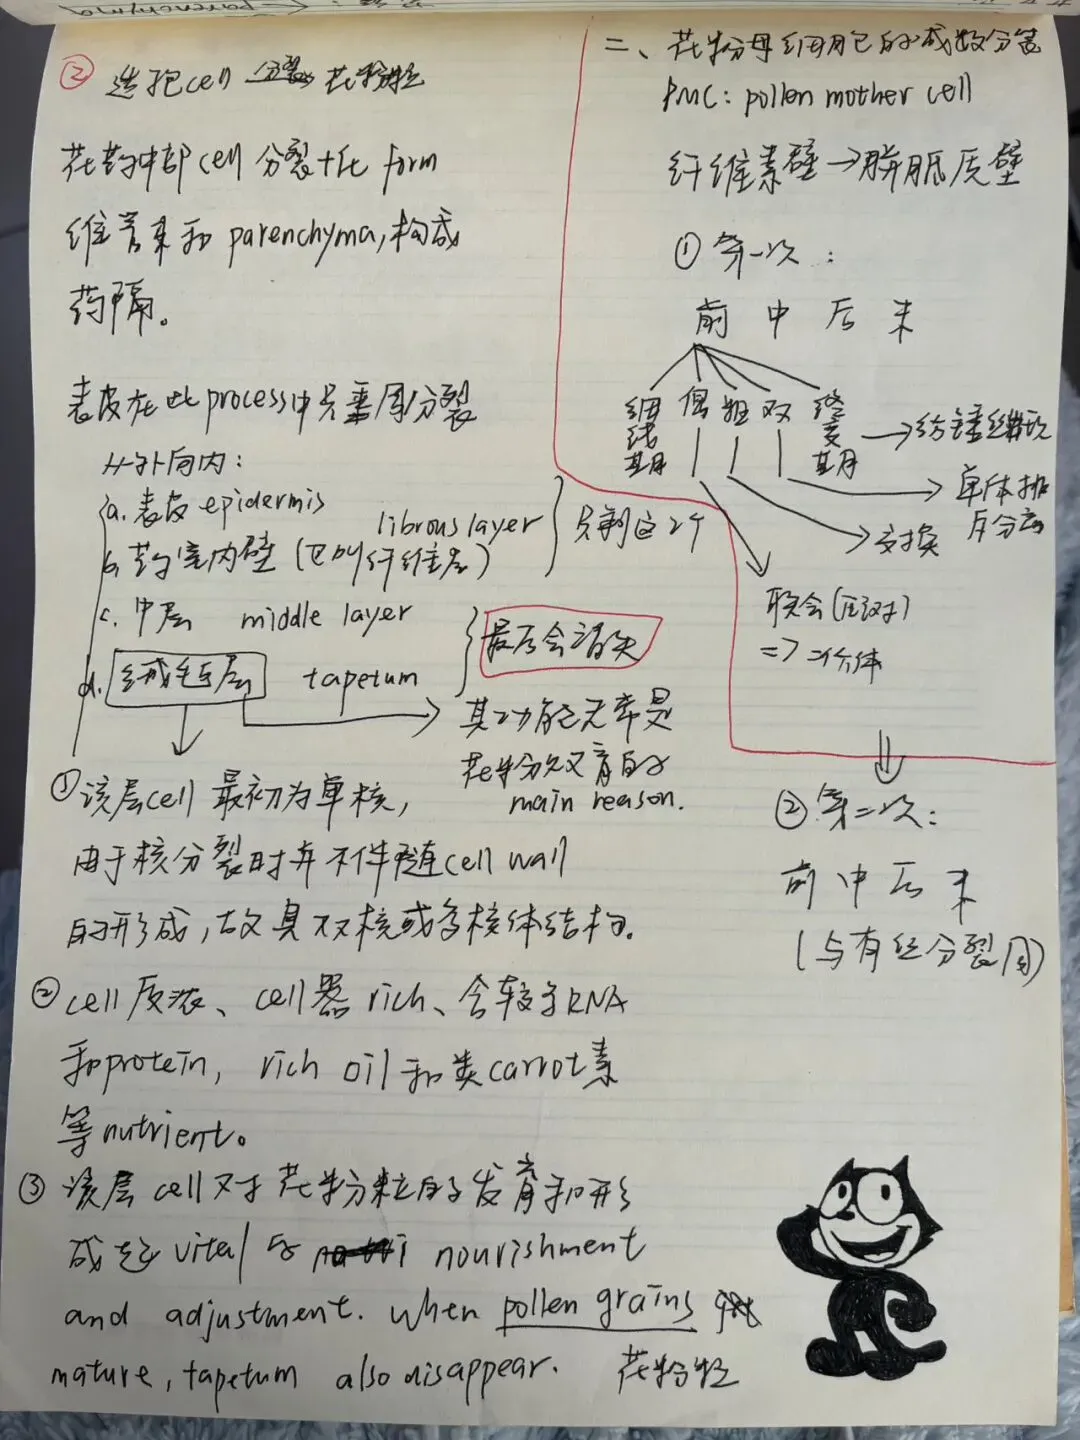 ② 造孢cell 分裂→ 花粉粒
花药中部cell分裂十化 form
维管束和 parenchyma,构成
药隔。
表皮在此process中只垂周分裂
从外向内:
a. 表皮 epidermis
b. 药室内壁 (也叫纤维层)
librous layer
只剩这2个
c. 中层 middle layer
d. 绒毡层 tapetum
最后会消失
其功能无常是
花粉败育的
main reason.
① 该层cell 最初为单核,
由于核分裂时并不伴随cell wall
的形成,故具双核或多核体结构.
② cell质浓、cell器rich、含较多RNA
和protein, rich oil和类carrot素
等nutrient。
③ 该层cell对花粉粒的发育和形
成起vital的 nourishment
and adjustment. When pollen grains
mature, tapetum also disappear. 花粉粒
二、花粉母细胞的减数分裂
PMC: pollen mother cell
纤维素壁→胼胝质壁
① 第一次:
前 中 后 末
细线期 偶 粗 双 终变期
→纺锤丝出现
→交换
联会(配对)
=> 二价体
② 第二次:
前 中 后 末
(与有丝分裂同)